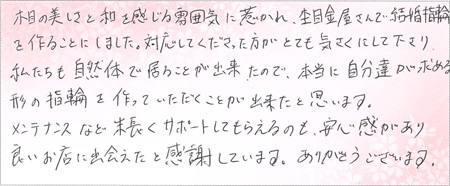 木目の美しさと和を感じる雰囲気に惹かれ、杢目金屋さんで結婚指輪
を作ることにしました。対応してくださった方がとても気さくにして下さり
私たちも自然体で居ることが出来たので、本当に自分達が求める
形の指輪を作っていただくことが出来たと思います。
メンテナンスなど末長くサポートしてもらえるのも、安心感があり
良いお店に出会えたと感謝しています。ありがとうございます。